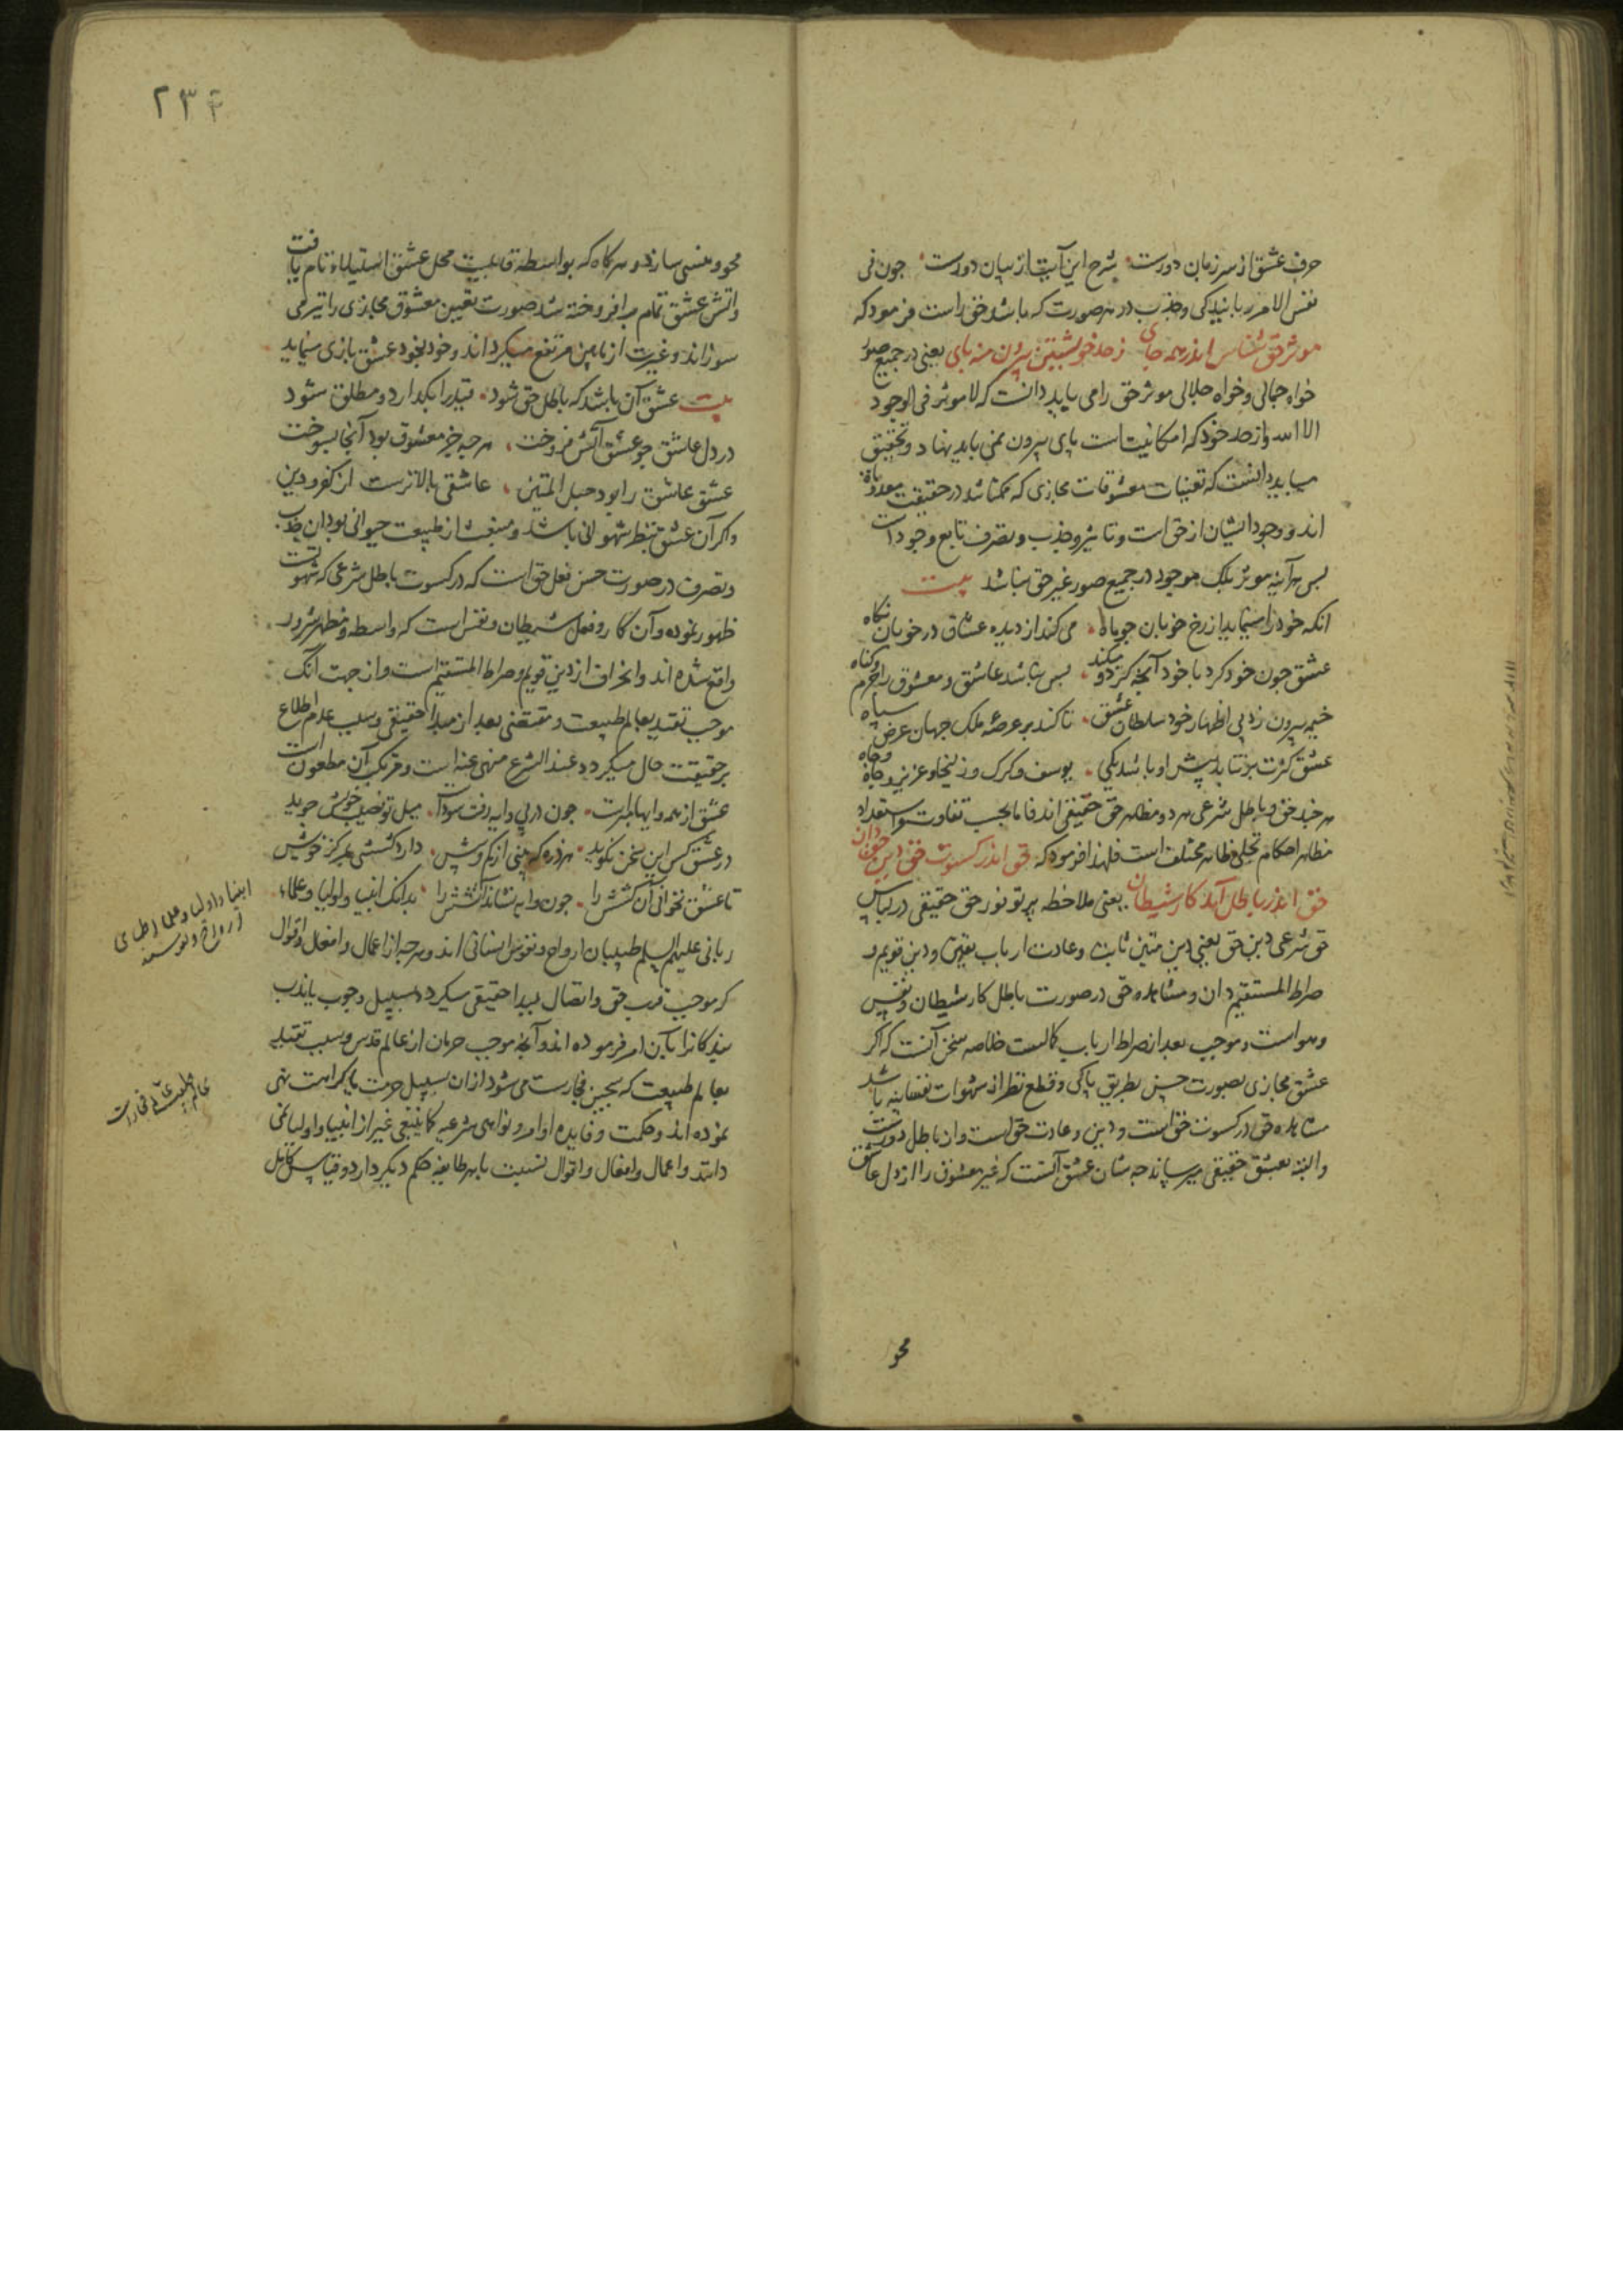 حرف عشق از سر زبان دورست شرح این آیت از بیان دورست چون فی
نفس الامر ربایندکی و جذب در هر صورت که باشد حق راست فرمود که
موثر حق شناس اندر همه جای ز حد خویشتن بیرون منه پای یعنی در جمیع صور
خواه جمالی و خواه جلالی موثر حق را می باید دانست که لا موثر فی الوجود
الا الله و از حد خود که امکانیت است پای بیرون نمی باید نهاد و بتحقیق
میباید دانست که تعینات معشوقات مجازی که ممکناتند در حقیقت
اند و وجود ایشان از حق است و تاثیر و جذب و تصرف تابع وجود است
پس هر آینه موثر بلک موجود در جمیع صور غیر حق نباشد بیت
انکه خود را مینماید از رخ خوبان چو ماه می کند از دیده عشاق در خوبان نکاه
عشق چون خود کرد با خود آنچه کرد و میکند پس نباشد عاشق و معشوق را جرم و کناه
خیمه بیرون زد پی اظهار خود سلطان عشق تا کند بر عرصه ملک جهان عرض سپاه
عشق کثرت بر نتابد پیش او باشد یکی یوسف و کرک و زلیخا و عزیز و جاه و چاه
هر چند حق و باطل شرعی هر دو مظاهر حق حقیقی اند فاما بحسب تفاوت استعداد
مظاهر احکام تجلی و ظاهر مختلف است فلهذا فرمود که حق اندر کسوت حق دین حق دان
حق اندر باطل آمد کار شیطان یعنی ملاحظه پرتو نور حق حقیقی در لباس
حق شرعی دین حق یعنی دین متین ثابت و عادت ارباب یقین و دین قویم و
صراط المستقیم دان و مشاهده حق در صورت باطل کار شیطان و نفس
و هواست و موجب بعد از صراط ارباب کمالست خلاصه سخن آنست که اکر
عشق مجازی بصورت حسن بطریق پاکی و قطع نظر از شهوات نفسانیه باشد
مشاهده حق در کسوت حق است و دین و عادت حق است و از باطل دورست
و البته بعشق حقیقی میرساند چه شان عشق آنست که غیر معشوق را از دل عاشق
محو
۲۳۴
محو و منسی سازد و هر کاه که بواسطه قابلیت محل عشق استیلاء تام یافت
و اتش عشق تمام بر افروخته شد صورت تعین معشوق مجازی را نیز می
سوزاند و غیرت از مابین مرتفع میکرداند و خود بخود عشق بازی مینماید
بیت عشق آن باشد که باطل حق شود قید را بکذارد و مطلق شود
در دل عاشق چو عشق آتش فروخت هر چه جز معشوق بود آنجا بسوخت
عشق عاشق را بود حبل المتین عاشقی بالاترست از کفر و دین
و اکر آن عشق بنظر شهوانی باشد و منبعث از طبیعت حیوانی بود آن جذب
و تصرف در صورت حسن فعل حق است که در کسوت باطل شرعی که شهوتست
ظهور نموده و آن کار و فعل شیطان و نفس است که واسطه و مظهر شرور
واقع شده اند و انحراف از دین قویم و صراط المستقیم است و از جهت آنک
موجب تقید بعالم طبیعت و مقتضی بعد از مبدا حقیقی و سبب عدم اطلاع
بر حقیقت حال میکردد عند الشرع منهی عنه است و مرتکب آن مطعون است
عشق از همه وایها مبراست چون در پی وایه رفت سوداست میل تو نصیب خویش جوید
در عشق کس این سخن نکوید هر ذره که بینی از کم و بیش دارد کششی بمرکز خویش
تا عشق نخوانی آن کشش را چون وایه نشاند آتشش را بدانک انبیا و اولیا و علماء
ربانی علیهم السلم طبیبان ارواح و نفوس انسانی اند و هر چه از اعمال و افعال و اقوال
که موجب قرب حق و اتصال بمبدا حقیقی میکردد بسبیل وجوب یا ندب
بندکانرا بآن امر فرموده اند و آنچه موجب حرمان از عالم قدس و سبب تقید
بعالم طبیعت که سجین فجارست می شود از آن بسبیل حرمت یا کراهت نهی
نموده اند و حکمت و فایده اوامر و نواهی شرعیه کما ینبغی غیر از انبیا و اولیا نمی
دانند و اعمال و افعال و اقوال نسبت با هر طایفه حکم دیکر دارد و قیاس کامل
انبیا و اولیا و علما اطبای
ارواح و نفوسند
عالم طبیعت